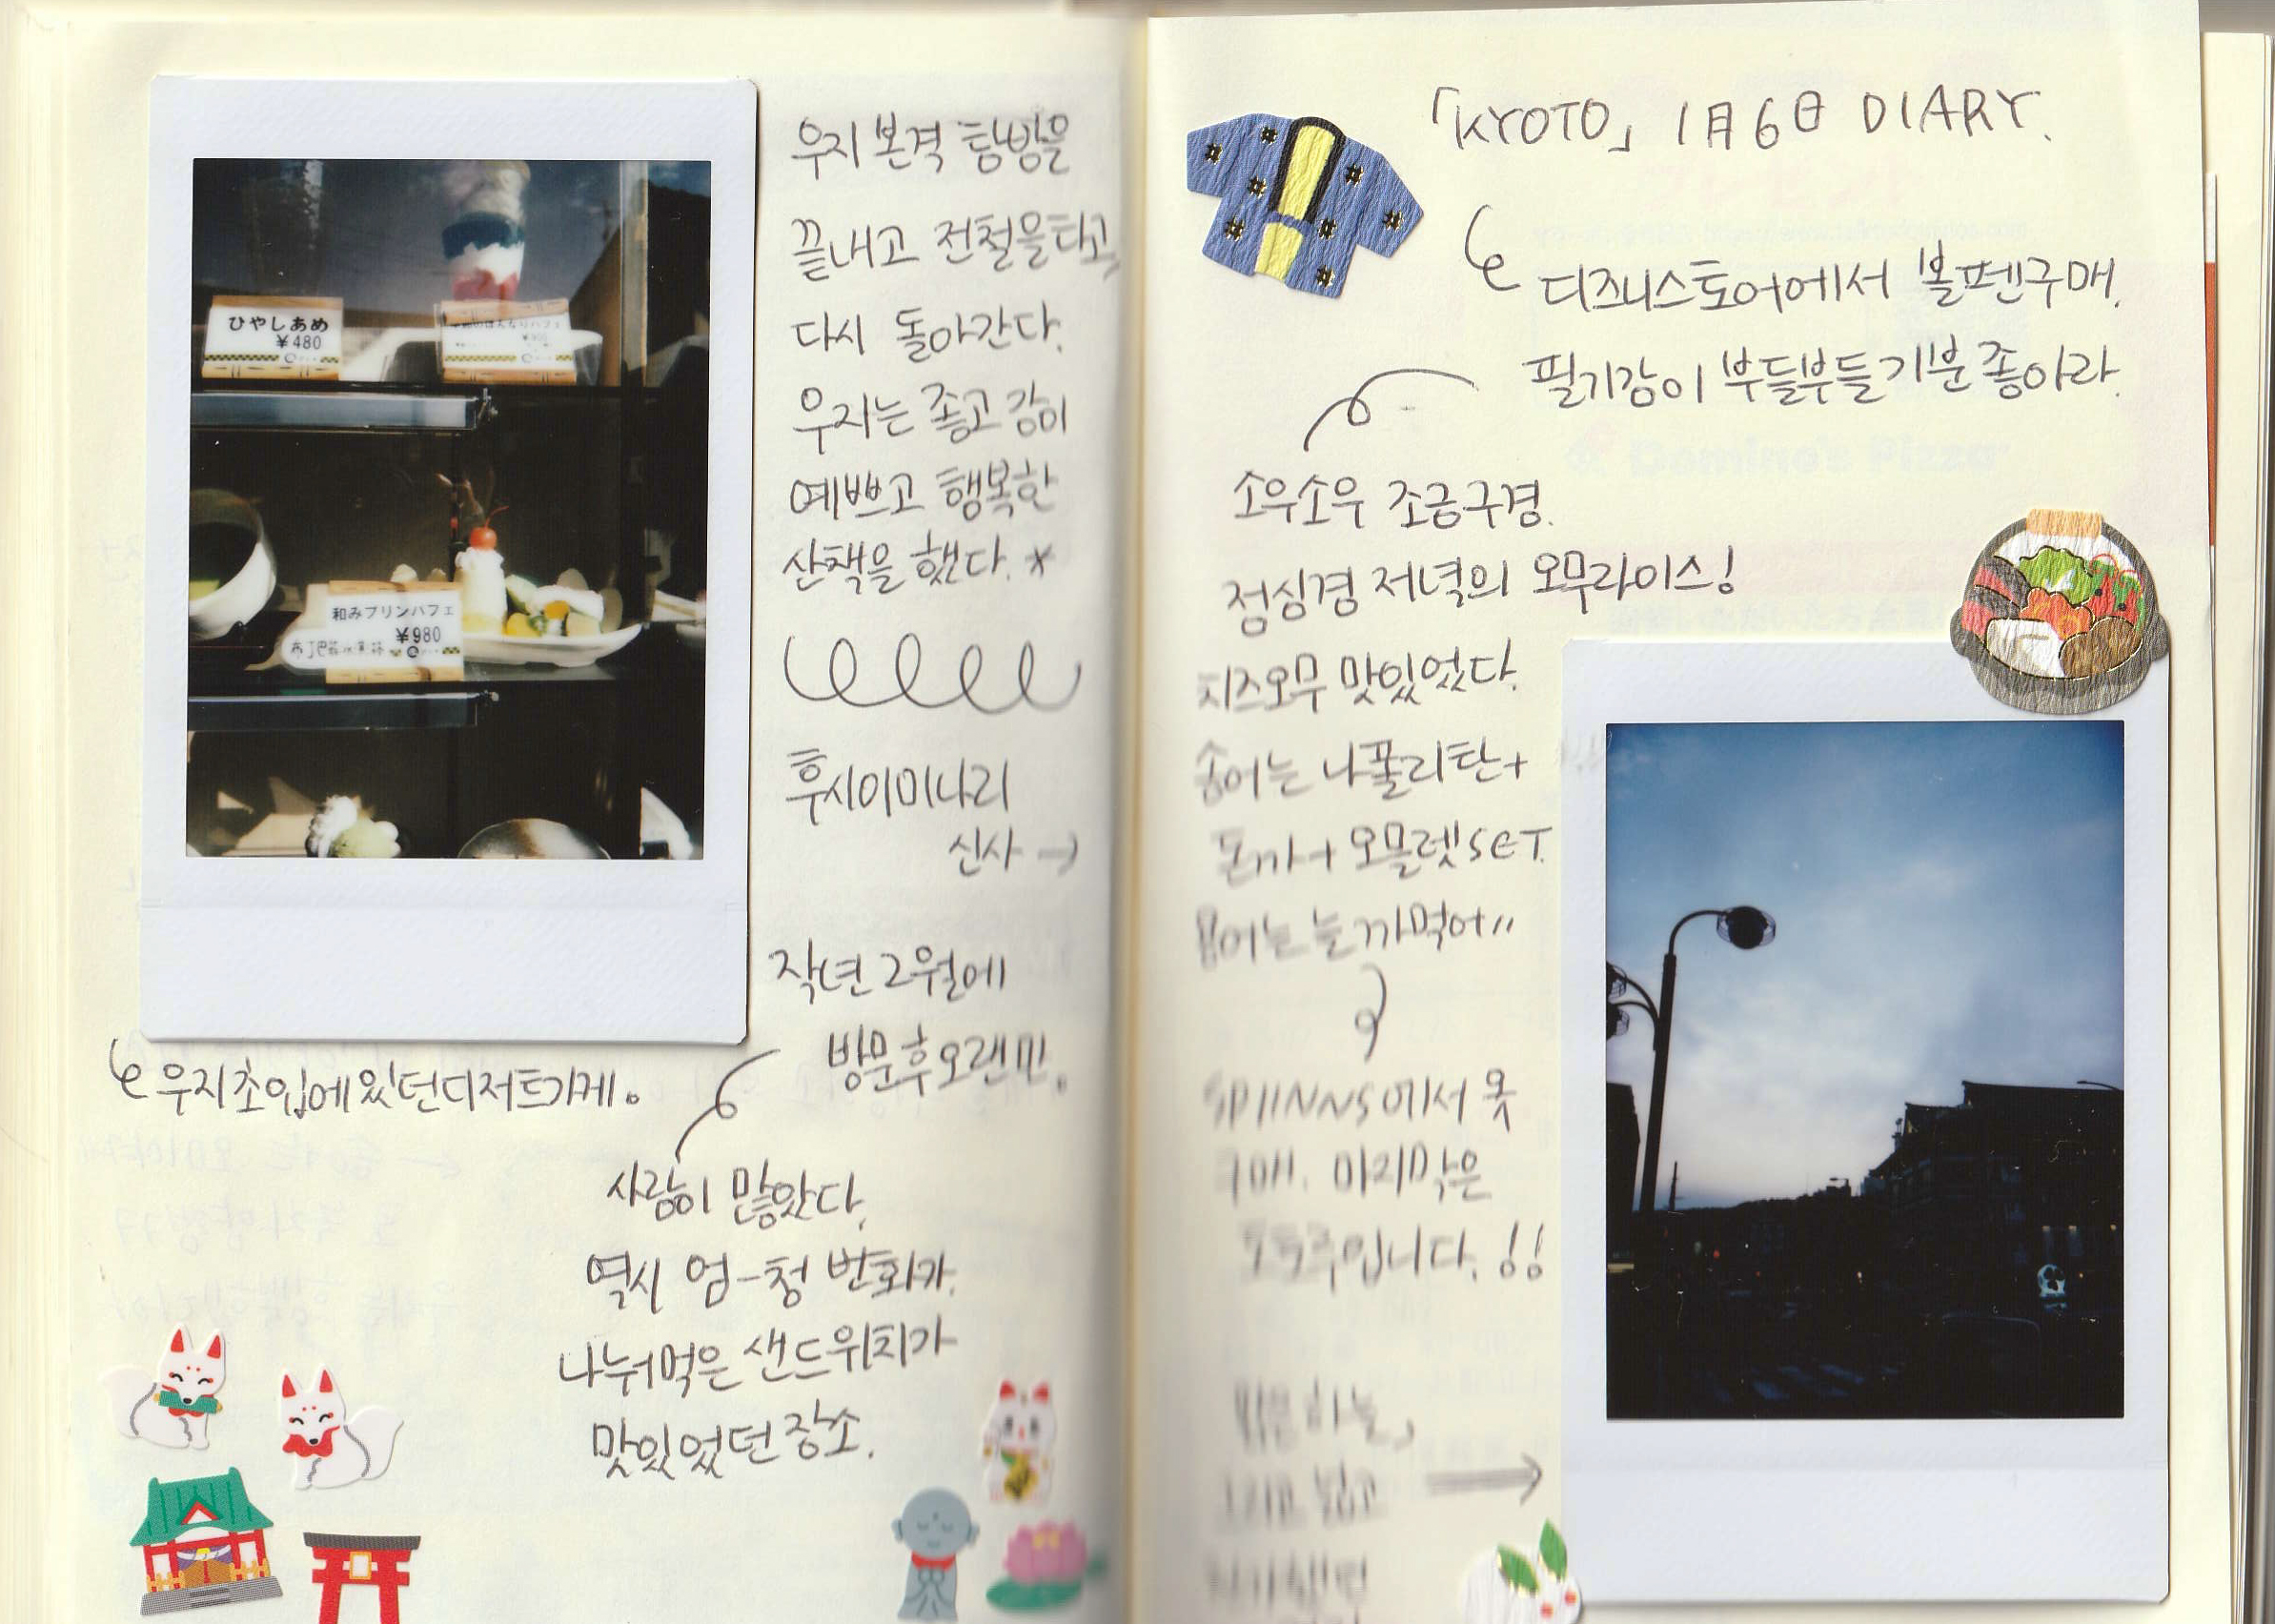 ひやしあめ
¥480
和みプリンパフェ
¥980
우지 본격 탐방을
끝내고 전철을타고,
다시 돌아간다.
우지는 좋고 감이
예쁘고 행복한
산책을 했다. *
후시이미나리
신사 →
작년 2월에
방문후오랜만.
우지초입에있던디저트가게。
사람이 많았다.
역시 엄-청 번화가.
나눠먹은 샌드위치가
맛있었던 장소.
「KYOTO」 1月6日 DIARY.
디즈니스토어에서 볼펜구매.
필기감이 부들부들기분좋아라.
소우소우 조금구경.
점심겸 저녁의 오무라이스!
치즈오무 맛있었다.
숨어는 나폴리탄+
돈까+오믈렛SET.
늘 까먹어〃
SPINNS에서 옷
구매. 마지막은
입니다.!!
맑은하늘,
그리고 넓고